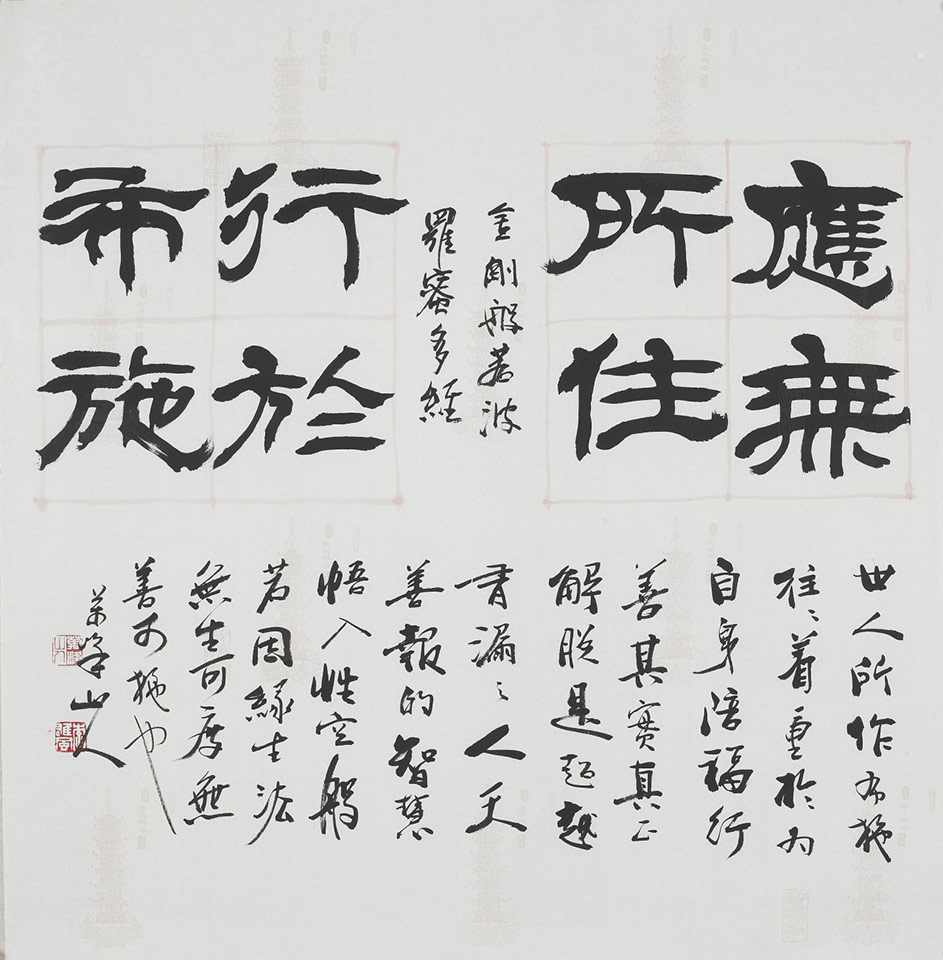 應無
所住
金剛般若波
羅蜜多經
行於
布施
世人所作布施
往〻着重於为
自身陪福行
善其實真正
解脫是超越
有漏〻人天
善報的智慧
悟入性空般
若因緣生法
無生可度無
善可施也
峰山人